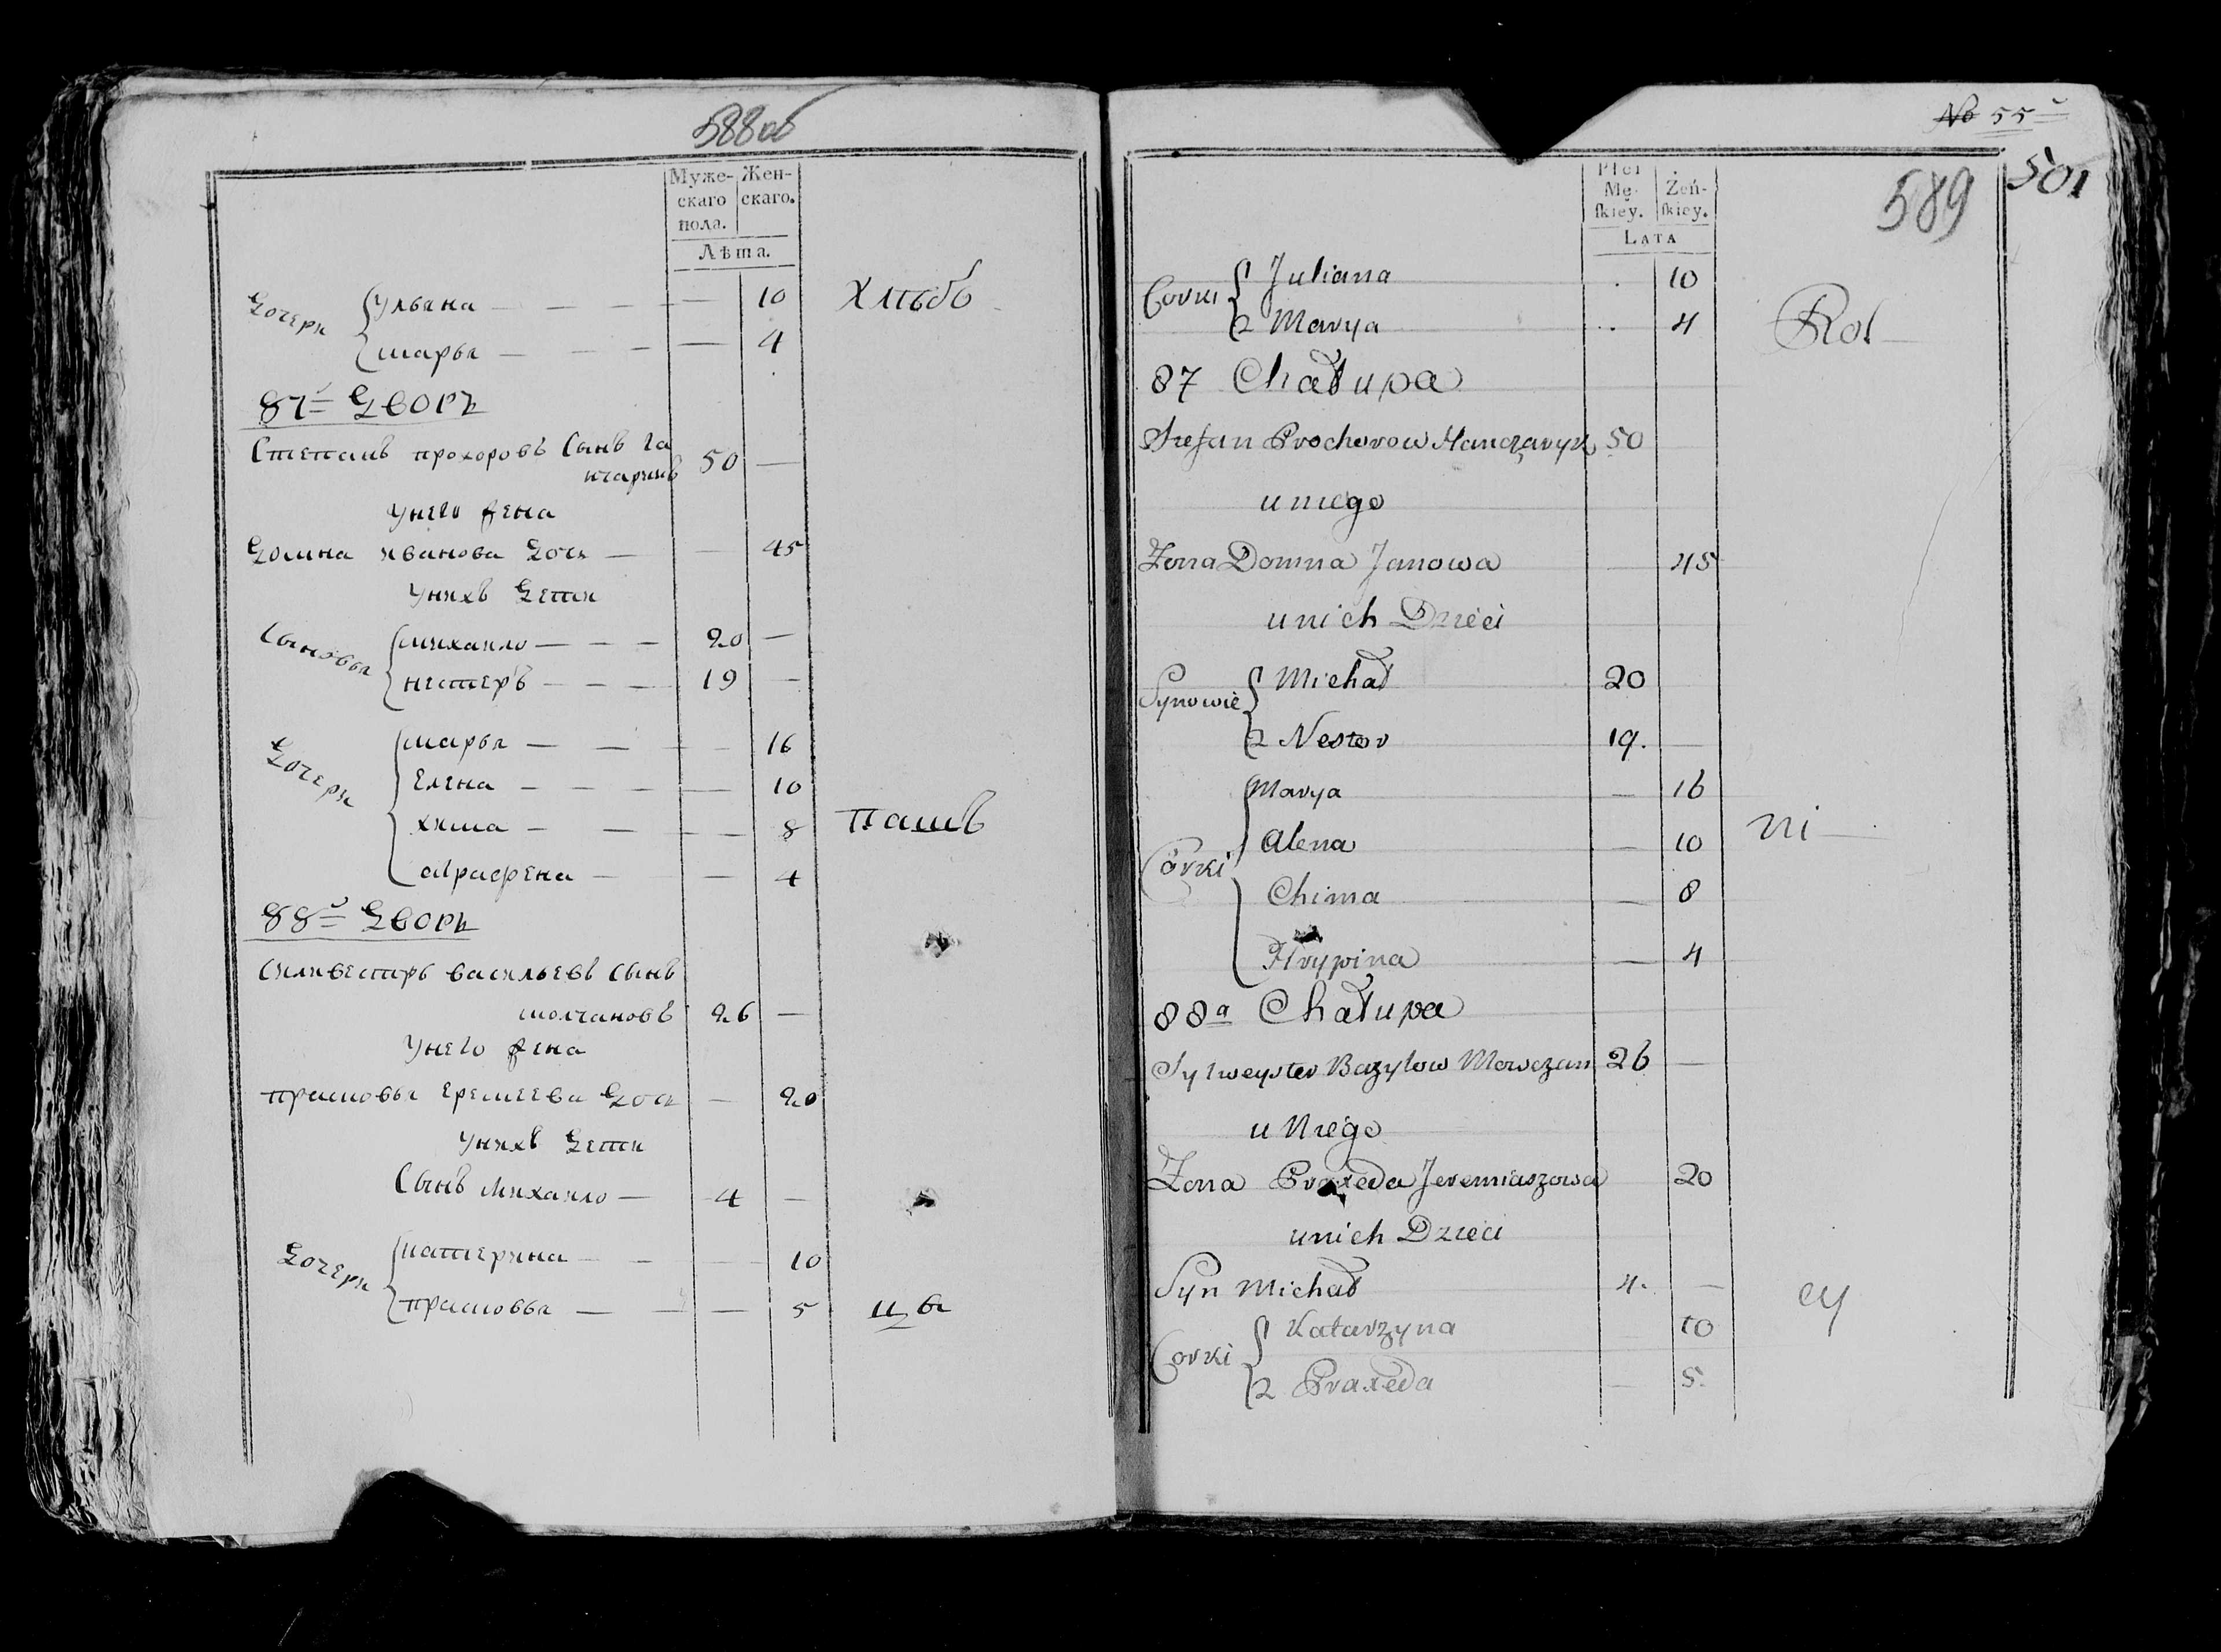 588 об
Муже-
скаго
пола.
Жен-
скаго.
Лѣта.
Дочери
Ульяна — — — — 10
марья — — — — 4
Хлѣбо
87й Дворъ
Степанъ прохоровъ Сынъ Га
нчаринъ 50 —
Унего жена
Домна иванова Дочь — — 45
Унихъ Дети
Сыновья
михаило — — — 20 —
нестеръ — — — 19 —
Дочери
марья — — — — 16
Елена — — — — 10
хима — — — — 8
Аграфена — — 4
пашъ
88й Дворъ
Силивестръ васильевъ Сынъ
молчановъ 26 —
Унего жена
прасковья Еремеева Дочь — 20
Унихъ Дети
Сынъ Михаило — 4 —
Дочери
катерина — — — 10
прасковья — — — 5
цы
No 55
501
589
Płci
Mę-
skiey.
Żeń-
skiey.
LATA
Corki
Juliana . 10
2 Marya .. 4
Rol
87 Chałupa
Stefan Prochorow Hanczaryk 50
u niego
Zona Domna Janowa — 45
unich Dzieci
Synowie
Michał 20
2 Nestor 19. —
Córki
Marya — 16
Alena — 10
Chima — 8
Hrypina — 4
ni
88a Chałupa
Sylweyster Bazylow Mowczan 26 —
u Niego
Zona Praxeda Jeremiaszowa 20
unich Dzieci
Syn Michał 4. —
Corki
Katarzyna 10
2 Praxeda — 5.
cy